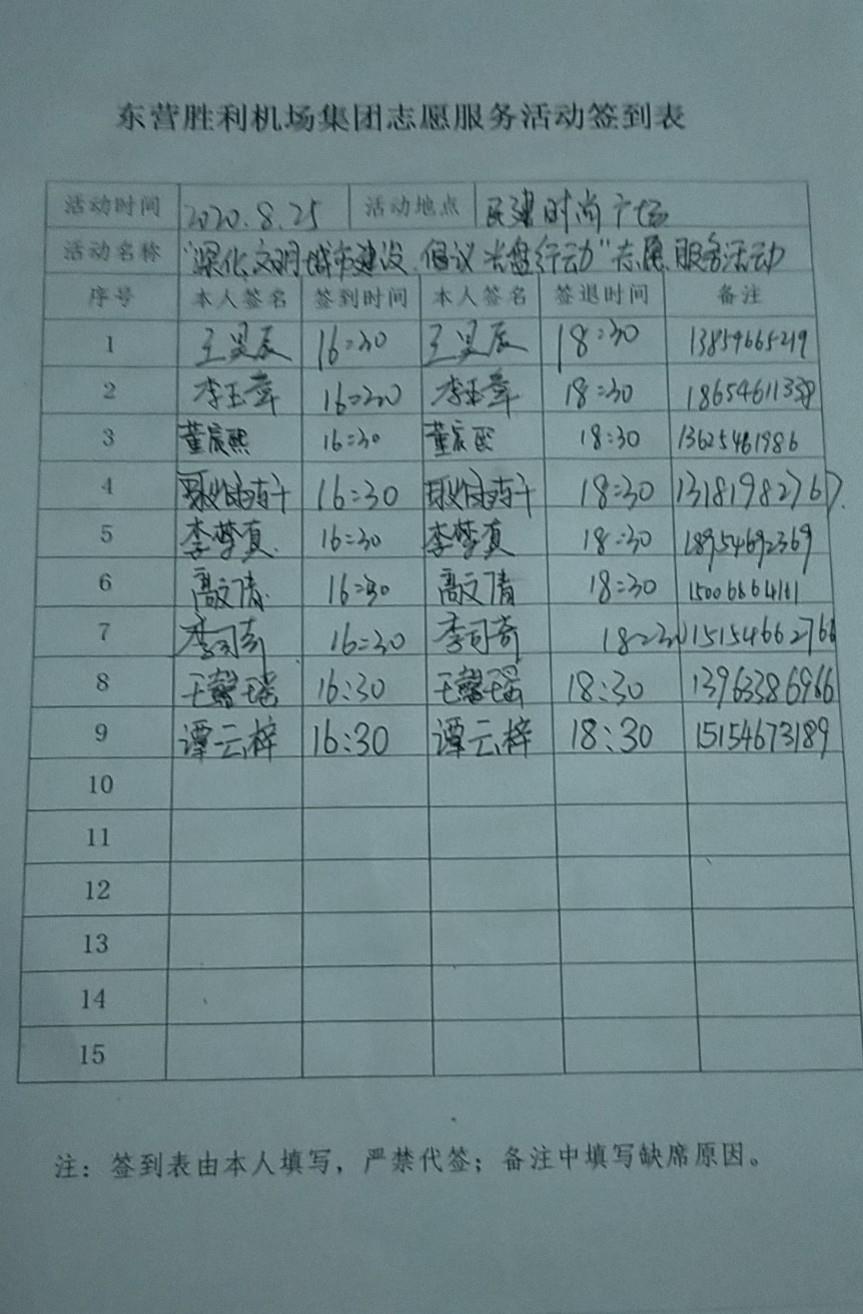 东营胜利机场集团志愿服务活动签到表
活动时间 2020.8.25 活动地点 民建时尚广场
活动名称 "深化文明城市建设 倡议光盘行动"志愿服务活动
序号 本人签名 签到时间 本人签名 签退时间 备注
1 王昊辰 16:30 王昊辰 18:30 13854665219
2 李玉章 16:30 李玉章 18:30 18654611338
3 董宸熙 16:30 董宸熙 18:30 13625461986
4 16:30 18:30 13181982767
5 李梦真 16:30 李梦真 18:30 18954692369
6 高文倩 16:30 高文倩 18:30 15006864161
7 李司奇 16:30 李司奇 18:30 15154662766
8 王馨瑶 16:30 王馨瑶 18:30 13963386966
9 谭云梓 16:30 谭云梓 18:30 15154673189
10
11
12
13
14
15
注：签到表由本人填写，严禁代签；备注中填写缺席原因。